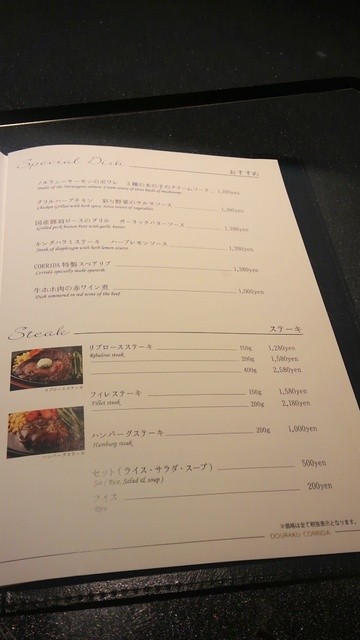 Special Dish
おすすめ
ノルウェーサーモンのポワレ 3種の木の子のクリームソース
グリルハーブチキン 彩り野菜のサルサソース
Chicken Grilled with herb spicy Salsa sauce of vegetables
国産豚肩ロースのグリル ガーリックバターソース
Grilled pork breast loin with garlic butter
キングハラミステーキ ハーブレモンソース 1,280yen
Steak of diaphragm with herb lemon source
CORRIDA 特製スペアリブ 1,380yen
Corrida specially made sparerib
牛ホホ肉の赤ワイン煮 1,000yen
Dish simmered in red wine of the beef
Steak
ステーキ
リブロースステーキ 150g 1,280yen
Ribulose steak 200g 1,580yen
400g 2,580yen
リブロースステーキ
フィレステーキ 150g 1,580yen
Fillet steak 200g 2,180yen
ハンバーグステーキ 200g 1,000yen
Hamburg steak
ハンバーグステーキ
セット ( ライス・サラダ・スープ ) 500yen
Set ( Rice, Salad & soup )
ライス 200yen
Rice
※価格は全て税抜表示となります。
DOURAKU CORRIDA